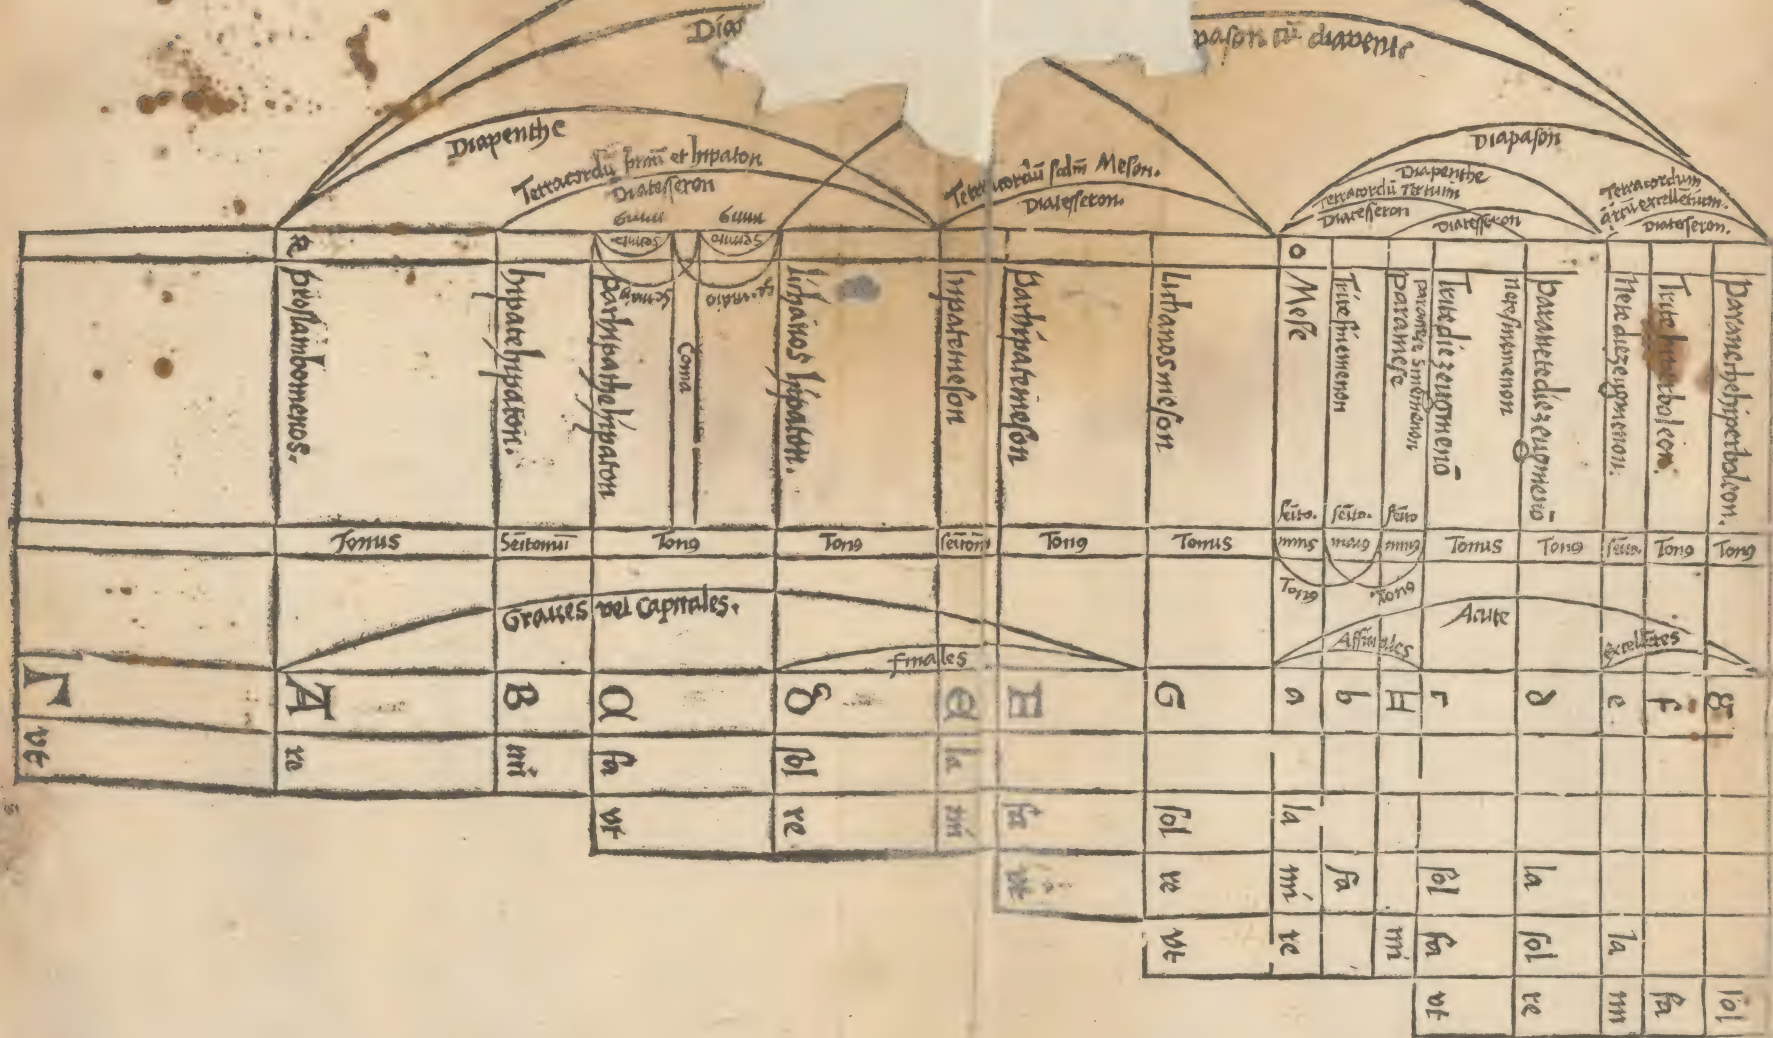 Dia
pason cū diapente
Diapenthe
Tetracordū prīmū et hipaton
Diatesseron
Tetracordū secdm Meson.
Diatesseron.
Diapason
Diapenthe
Tetracordū Tertium
Diatesseron
Diatesseron
Tetracordum
excelletium.
Diatesseron.
proslambomenos.
hipatehipaton.
parhipathehipaton
Coma
lichanos hipaton.
hipatemeson
parhipatemeson
lichanosmeson
Mese
Tritesinemenon
paramese
paranete Sinemenon
Tritediezeuomenō
netesinemenon
paranetediezeugmeno.
Netediezeugmenon.
Trite hiperboleon.
paranethehiperboleon.
Tonus
Sēitonuī
Tonꝰ
Tonꝰ
sēitonī
Tonꝰ
Tonus
sēito.
sēito.
sēito
Tonus
Tonꝰ
sēito.
Tonꝰ
Tonꝰ
Tonꝰ
Tonꝰ
Graues vel Capitales.
finales
Affinales
Acute
excellētes
Γ A B C D e F G a b H c d e f g
vt re mi fa sol la
vt re mi fa sol la
vt re mi fa sol la
vt re mi fa sol la
vt re mi fa sol